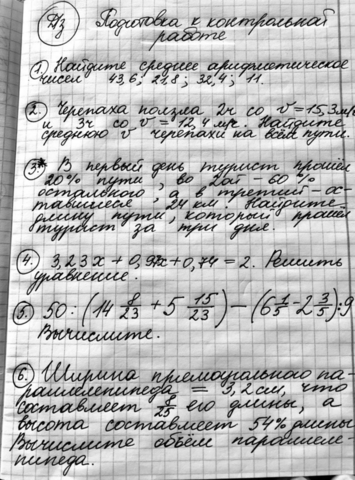 Дз Подготовка к контрольной
работе
1. Найдите среднее арифметическое
чисел 43,6; 21,8; 32,4; 11.
2. Черепаха ползла 2ч со v = 15,3 м/ч
и 3ч со v = 12,4 м/ч. Найдите
среднюю v черепахи на всём пути.
3* В первый день турист прошёл
20% пути, во 2ой - 60%
остального, а в третий - ос-
тавшиеся 24 км. Найдите
длину пути, который прошёл
турист за три дня.
4. 3,23x + 0,97x + 0,74 = 2. Решить
уравнение.
5. 50 : (14 8/23 + 5 15/23) - (6 1/5 - 2 3/5) : 9
Вычислите.
6. Ширина прямоугольного па-
раллелепипеда = 3,2 см, что
составляет 8/25 его длины, а
высота составляет 54% длины
Вычислите объём параллеле-
пипеда.